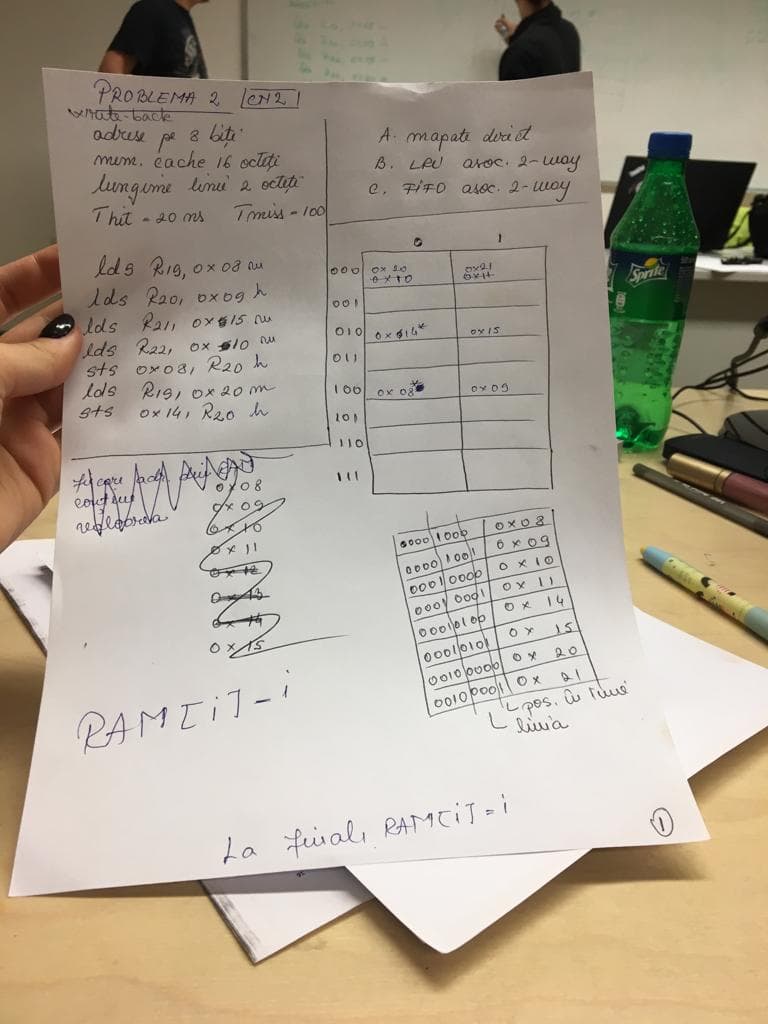 PROBLEMA 2 CN2
write-back
adrese pe 8 biți
mem. cache 16 octeți
lungime linii 2 octeți
Thit = 20 ns Tmiss = 100
A. mapate direct
B. LRU asoc. 2-way
C. FIFO asoc. 2-way
lds R19, 0x08 m
lds R20, 0x09 h
lds R21, 0x15 m
lds R22, 0x10 m
sts 0x08, R20 h
lds R19, 0x20 m
sts 0x14, R20 h
0 1
000 0x20 0x21
0x10 0x11
001
010 0x14* 0x15
011
100 0x08* 0x09
101
110
111
Fiecare adr. din RAM
conține
valoarea
0x08
0x09
0x10
0x11
0x12
0x13
0x14
0x15
0000 1000 0x08
0000 1001 0x09
0001 0000 0x10
0001 0001 0x11
0001 0100 0x14
0001 0101 0x15
0010 0000 0x20
0010 0001 0x21
pos. în linie
linia
RAM[i] = i
La final, RAM[i] = i
1
Sprite